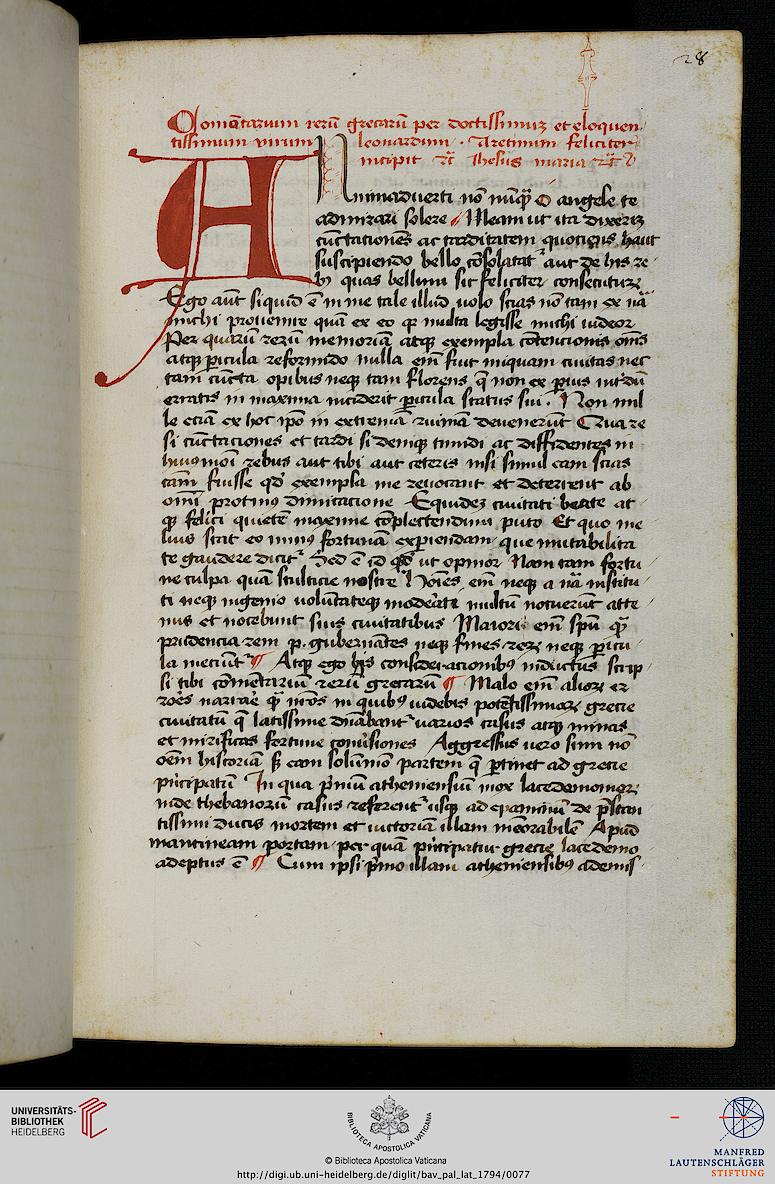 28
Comẽtarium rerũ grecarũ per doctissimuʒ et eloquen
tissimum virum leonardum · Aretinum feliciter
incipit ⁊c̃ Ihesus maria
A Nimaduerti nõ nũqʒ O angele te
admirari solere Meam ut ita dixeriʒ
cũctationẽs ac tarditatem quociens haut
suscipiendo bello cõsolatat᷑ aut de his re
bꝰ quas bellum sit feliciter consecuturʒ
Ego aũt siquid ẽ in me tale illud uolo scias nõ tam ex nã
michi prouenire quã ex eo qꝫ multa legisse michi uideor
Per quarũ rerũ memoriam atqʒ exempla cõtencionis oms̃
atqʒ ꝑicula reformido nulla em̃ fuit iniquam ciuitas nec
tam cũcta opibus neqʒ tam florens q̃ non ex ꝑuis int̾dũ
erratis in maxima inciderit ꝑicula status sui · Non nul
le eciã ex hoc ip̃o in extremã ruinã deuenerũt Quare
si cũctaciones et tardi si deniqʒ timidi ac diffidentes in
huiusmõi rebus aut tibi aut ceteris insi simul eam scias
cam̃ fuisse qd̾ exempla me reuocant et deterrent ab
om̃i protinus dimicacione Equideʒ ciuitati beate at
qʒ felici quietẽ maxime cõplectendum puto Et quo me
lius stat eo minꝰ fortunã experiendam que mutabilita
te gaudere dicit᷑ Sed ẽ id qd̾ ut opinor Nam tam fortu
ne culpa quã stulticie nostre Hoĩes em̃ neqʒ a nã institu
ti neqʒ ingenio uolũtateqʒ moderati multũ nocuerũt atte
nus et nocebunt suis ciuitatibus Maiori em̃ spũ qʒ̃
prudencia rem p. gubernãtes neqʒ fines rerʒ neqʒ ꝑicu
la meciũt᷑ ¶ Atqʒ ego his consideracionibꝰ inductus scrip
si tibi cõmẽtariũ rerũ grecarũ ¶ Malo em̃ alioʒ er
rores narrare qʒ̃ nr̃os in quibꝰ uidebis potẽtissimaʒ grecie
ciuitatũ q̃ latissime dñabant᷑ uarios casus atqʒ minas
et mirificas fortune conũsiones Aggressus uero sum nõ
oẽm historiã sʒ eam solũmõ partem q̃ ꝑtinet ad grecie
pñcipatũ In qua pñiũ atheniensiũ mox lacedomonioʒ
inde thebanorũ casus referent᷑ usqʒ ad epaminũde p̃stan
tissimi ducis mortem et uictoriã illam mẽorabilẽ Apud
mantineam portam per quã pñcipatur grecie lacedemo
adeptus ẽ ¶ Cum ipsi p̃mo illam atheniensibꝰ ademis
UNIVERSITÄTS-
BIBLIOTHEK
HEIDELBERG
BIBLIOTECA APOSTOLICA VATICANA
© Biblioteca Apostolica Vaticana
http://digi.ub.uni-heidelberg.de/diglit/bav_pal_lat_1794/0077
MANFRED
LAUTENSCHLÄGER
STIFTUNG